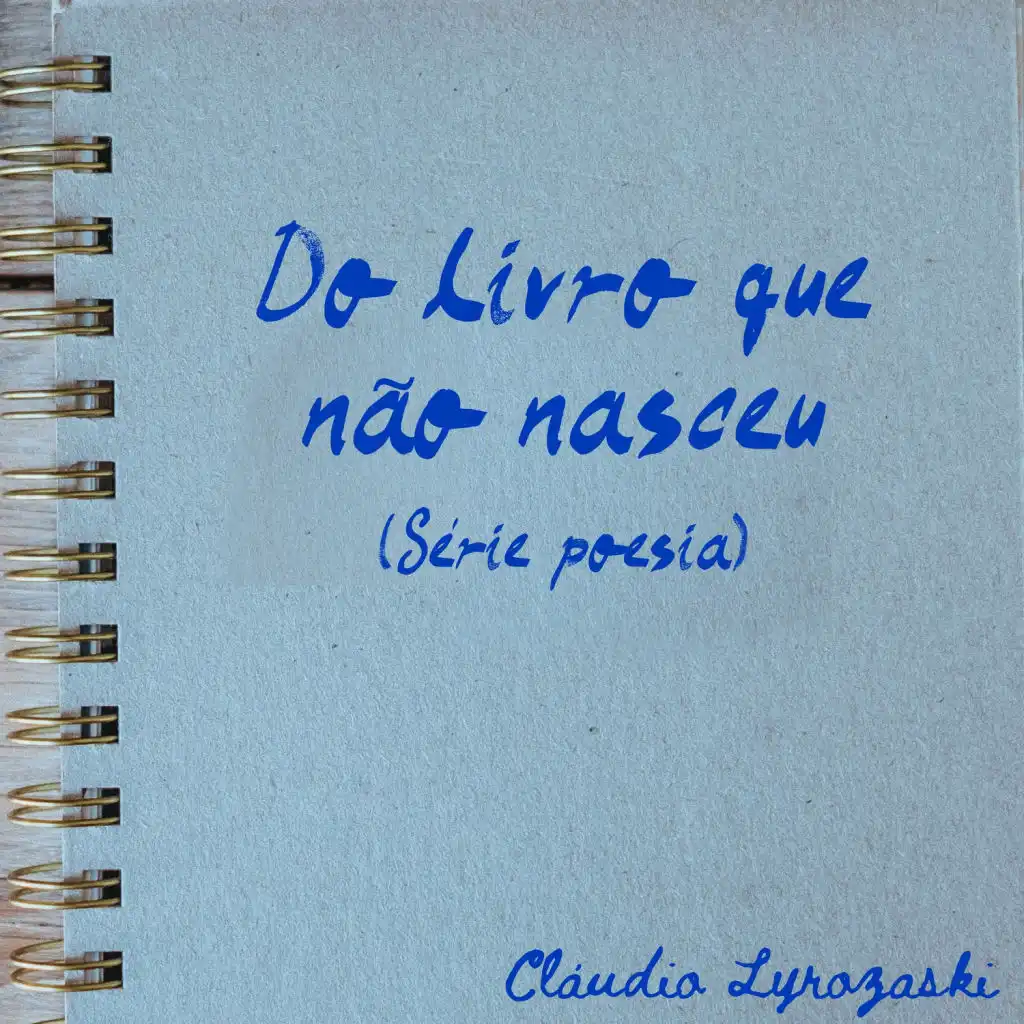 Do livro que
não nasceu
(Série poesia)
Cláudio Lyrozaski